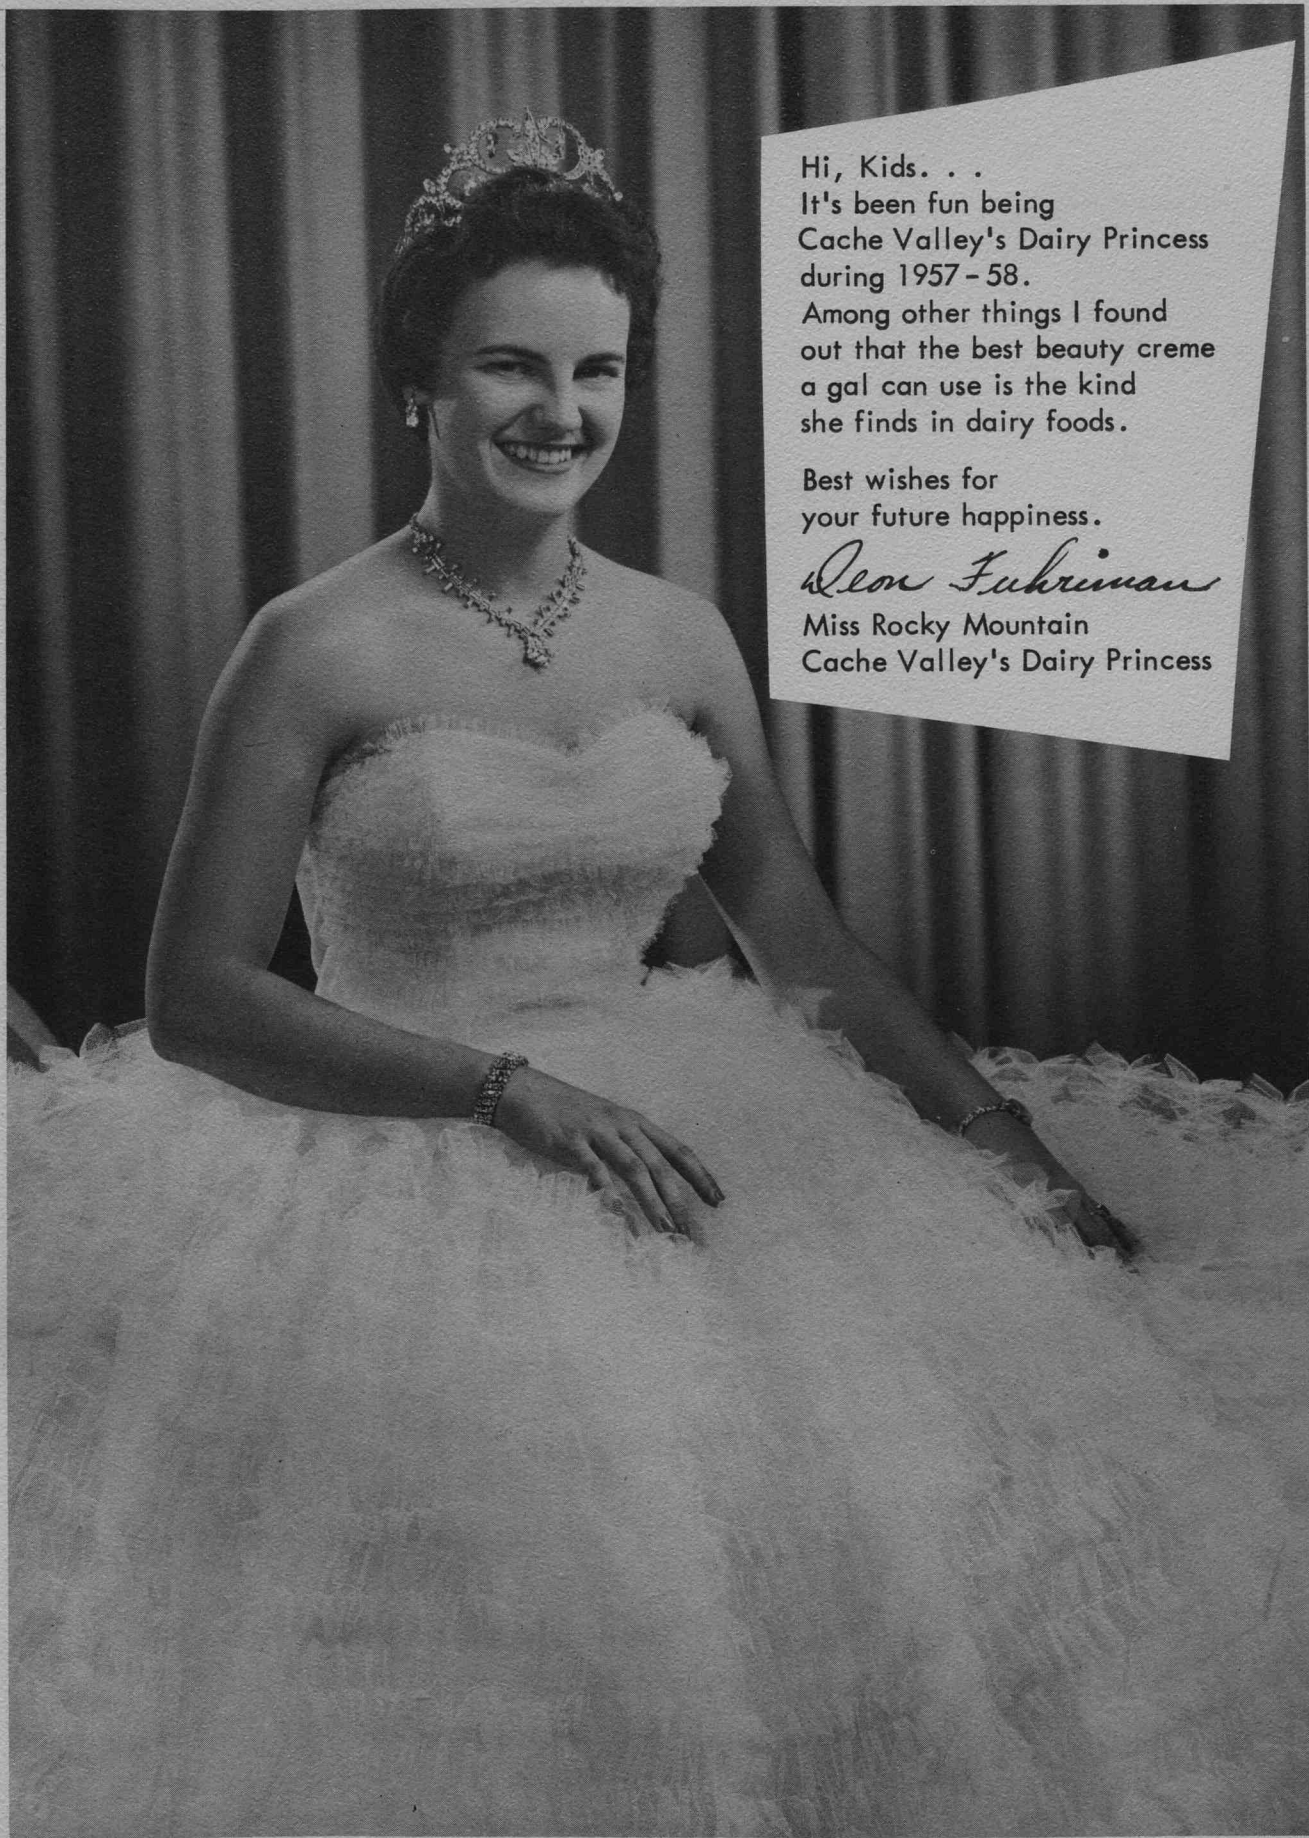 Hi, Kids. . .
It's been fun being
Cache Valley's Dairy Princess
during 1957-58.
Among other things I found
out that the best beauty creme
a gal can use is the kind
she finds in dairy foods.
Best wishes for
your future happiness.
Deon Fuhriman
Miss Rocky Mountain
Cache Valley's Dairy Princess